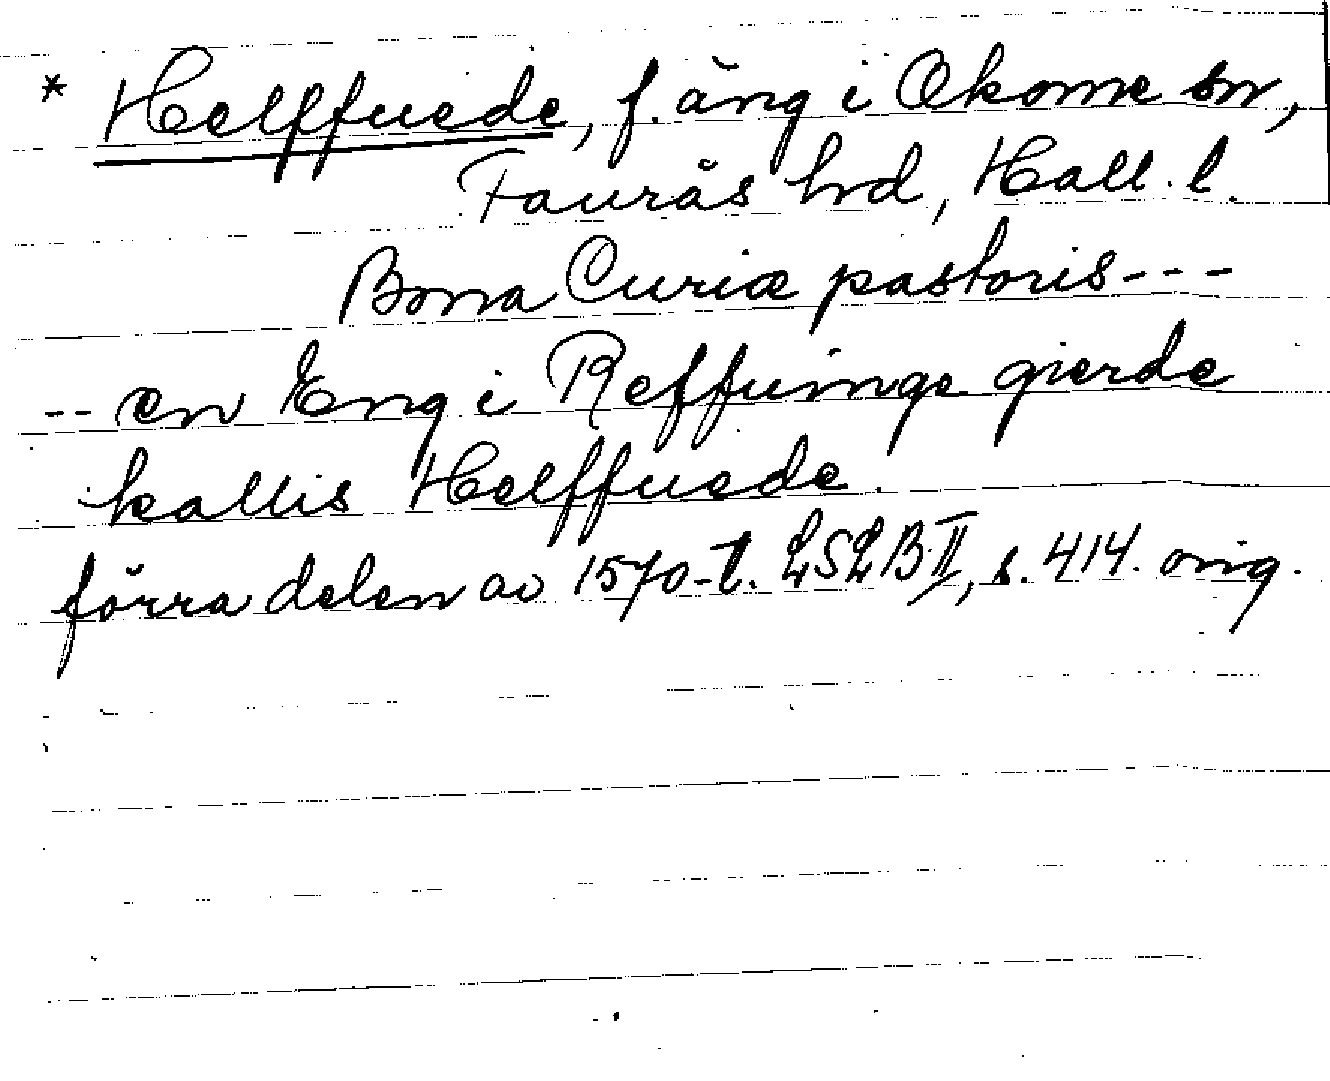 * Helffuede, f. äng i Okome sn,
Faurås hrd, Hall. l.
Bona Curiæ pastoris - - -
-- en Eng i Reffuinge gierde
kallis Helffuede.
förra delen av 1570-t. LSLB II, s. 414. orig.